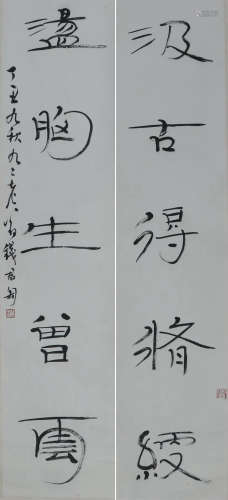 汲古得脩綆
盪胸生曾雲
丁丑九秋九二老人錢君匋